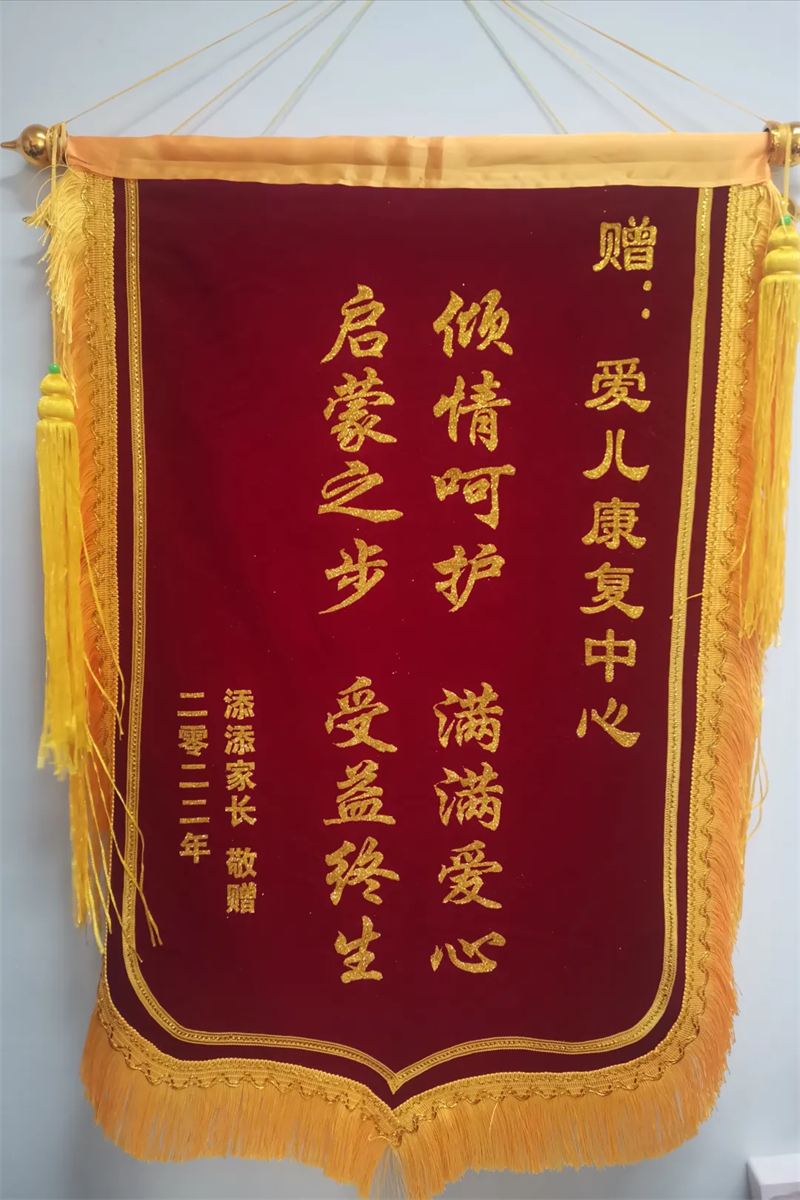 赠：爱儿康复中心
倾情呵护 满满爱心
启蒙之步 受益终生
添添家长 敬赠
二零二二年